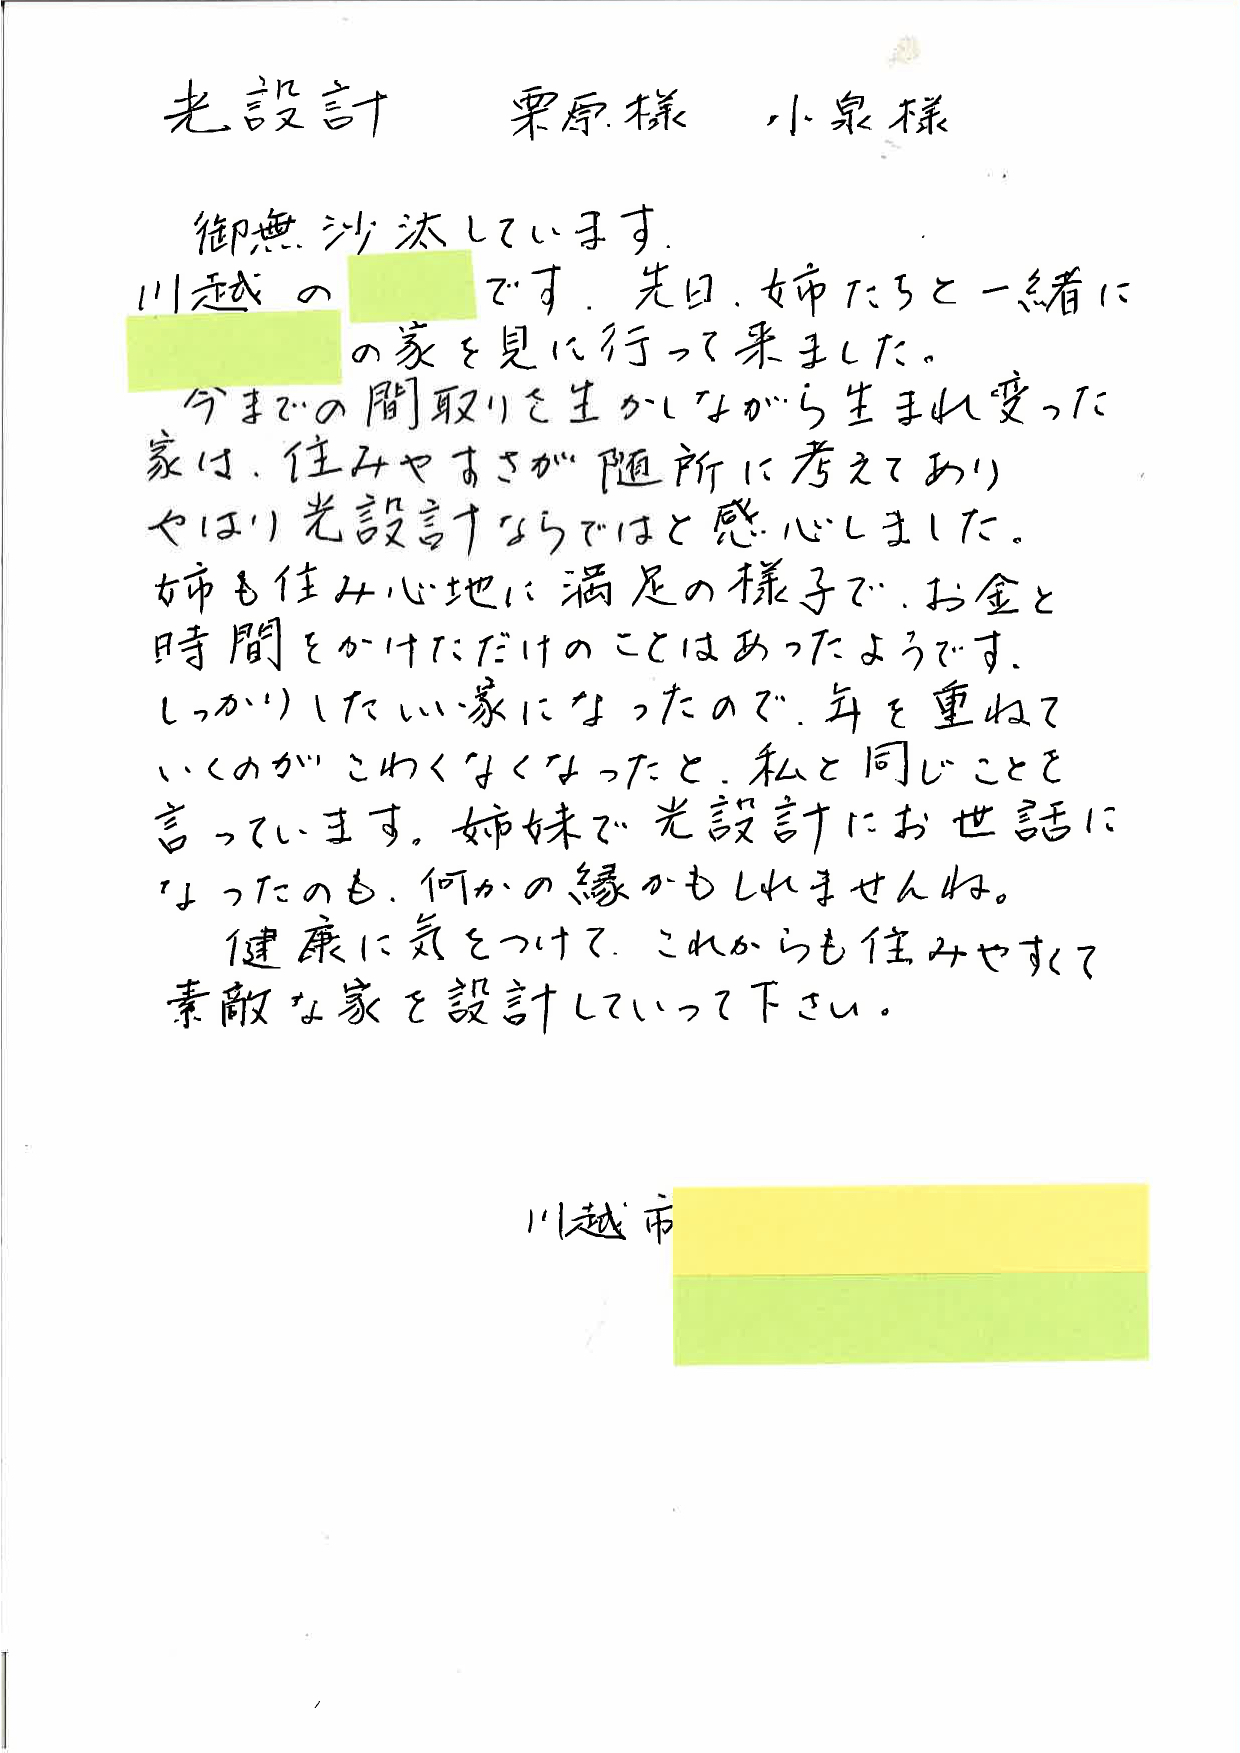 光設計　栗原様　小泉様
御無沙汰しています.
川越の　です. 先日、姉たちと一緒に
の家を見に行って来ました。
今までの間取りを生かしながら生まれ変った
家は、住みやすさが随所に考えてあり
やはり光設計ならではと感心しました。
姉も住み心地に満足の様子で、お金と
時間をかけただけのことはあったようです.
しっかりしたいい家になったので、年を重ねて
いくのがこわくなくなったと、私と同じことを
言っています。姉妹で光設計にお世話に
なったのも、何かの縁かもしれませんね。
健康に気をつけて、これからも住みやすくて
素敵な家を設計していって下さい。
川越市